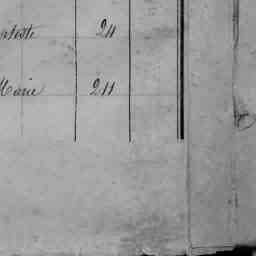 ptiste 211
Marie 211